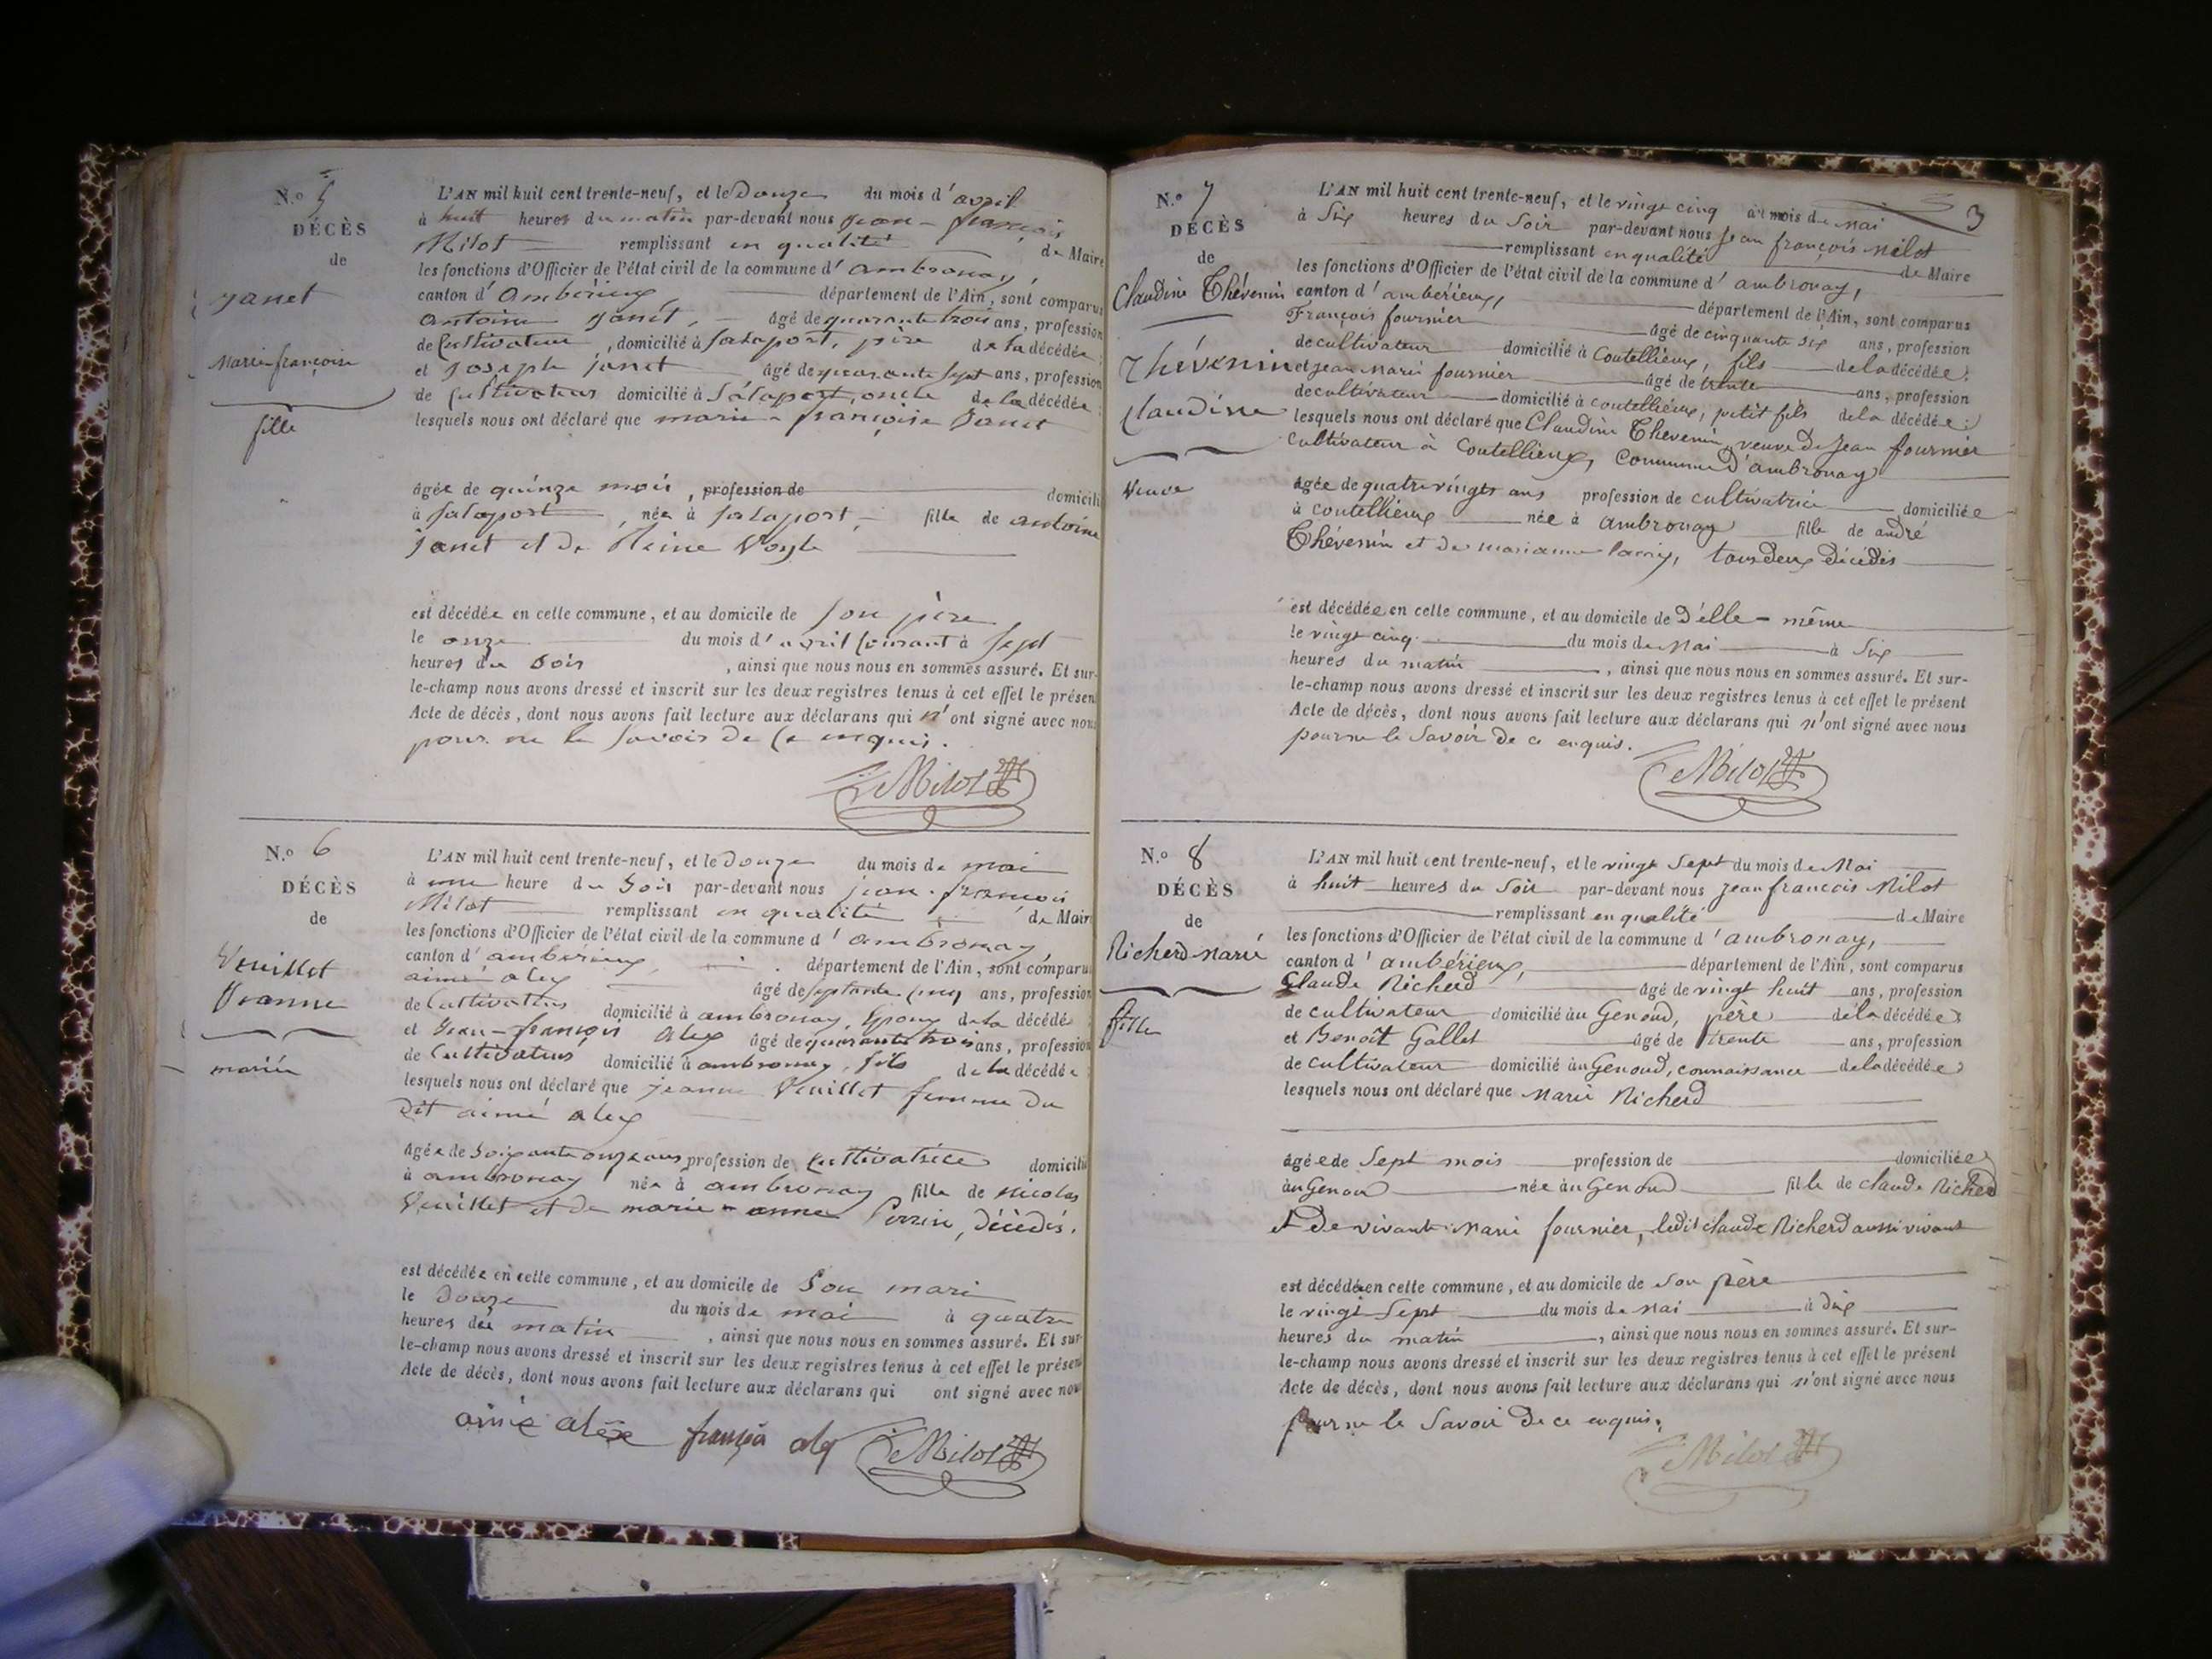 N.o 5
DÉCÈS
de
Janet
Marie françoise
fille
L'AN mil huit cent trente-neuf, et le Douze du mois d'avril
à huit heures du matin par-devant nous jean-françois
Milot remplissant en qualité de Maire
les fonctions d'Officier de l'état civil de la commune d'ambronay,
canton d'Ambérieux, département de l'Ain, sont comparus
antoine janet, âgé de quarante trois ans, profession
de Cultivateur, domicilié à Salaport, père de la décédée;
et joseph janet âgé de quarante sept ans, profession
de Cultivateur domicilié à Salaport, oncle de la décédée;
lesquels nous ont déclaré que marie françoise Janet
âgée de quinze mois, profession de domicili
à Salaport, née à Salaport, fille de antoine
Janet et de Reine Voyle
est décédée en cette commune, et au domicile de son père
le onze du mois d'avril Courant à sept
heures du soir, ainsi que nous nous en sommes assuré. Et sur-
le-champ nous avons dressé et inscrit sur les deux registres tenus à cet effet le présen
Acte de décès, dont nous avons fait lecture aux déclarans qui n'ont signé avec nous
pour ne le savoir de ce enquis.
Milot
N.o 6
DÉCÈS
de
Veuillet
Jeanne
mariée
L'AN mil huit cent trente-neuf, et le Douze du mois de mai
à une heure du soir par-devant nous jean-françois
Milot remplissant en qualité de Mair
les fonctions d'Officier de l'état civil de la commune d'ambronay
canton d'ambérieux département de l'Ain, sont comparu
aimé alex âgé de septante cinq ans, profession
de Cultivateur domicilié à ambronay, Epoux de la décédé
et Jean-françois alex âgé de quarante trois ans, profession
de Cultivateur domicilié à ambronay, fils de la décédée
lesquels nous ont déclaré que jeanne Veuillet femme du
dit aimé alex
âgée de soixante onze ans profession de Cultivatrice domicili
à ambronay née à ambronay fille de nicolas
Veuillet et de marie-anne Perrin, décédés.
est décédée en cette commune, et au domicile de son mari
le Douze du mois de mai à quatre
heures du matin, ainsi que nous nous en sommes assuré. Et sur
le-champ nous avons dressé et inscrit sur les deux registres tenus à cet effet le présen
Acte de décès, dont nous avons fait lecture aux déclarans qui ont signé avec nou
aimé alexe françoi alex Milot
3
N.o 7
DÉCÈS
de
Claudine Thévenin
Thévenin
Claudine
Veuve
L'AN mil huit cent trente-neuf, et le vingt cinq du mois de Mai
à Six heures du Soir par-devant nous Jean françois Milot
remplissant en qualité de Maire
les fonctions d'Officier de l'état civil de la commune d'ambronay,
canton d'ambérieux, département de l'Ain, sont comparus
François fournier âgé de cinquante six ans, profession
de cultivateur domicilié à Coutellieux, fils de la décédée;
et jean Marie fournier âgé de trente ans, profession
de cultivateur domicilié à coutellieux, petit fils de la décédée;
lesquels nous ont déclaré que Claudine Thevenin, veuve de Jean fournier
cultivateur à Coutellieux, Commune d'ambronay
âgée de quatre vingts ans profession de cultivatrice domiciliée
à coutellieux née à ambronay fille de andré
Thévenin et de marianne tous deux décédés
est décédée en cette commune, et au domicile de D'elle-même
le vingt cinq du mois de Mai à Six
heures du matin, ainsi que nous nous en sommes assuré. Et sur-
le-champ nous avons dressé et inscrit sur les deux registres tenus à cet effet le présent
Acte de décès, dont nous avons fait lecture aux déclarans qui n'ont signé avec nous
pour ne le Savoir de ce enquis.
Milot
N.o 8
DÉCÈS
de
Richerd Marie
fille
L'AN mil huit cent trente-neuf, et le vingt Sept du mois de Mai
à huit heures du Soir par-devant nous jean françois Milot
remplissant en qualité de Maire
les fonctions d'Officier de l'état civil de la commune d'ambronay,
canton d'ambérieux, département de l'Ain, sont comparus
Claude Richerd âgé de vingt huit ans, profession
de cultivateur domicilié au Genoud, père de la décédée;
et Benoît Gallet âgé de trente ans, profession
de cultivateur domicilié au Genoud, connaissance de la décédée;
lesquels nous ont déclaré que Marie Richerd
âgée de Sept mois profession de domiciliée
au Genoud née au Genoud fille de claude Richerd
et De vivante Marie fournier, ledit claude Richerd aussi vivant
est décédée en cette commune, et au domicile de son père
le vingt Sept du mois de Mai à dix
heures du matin, ainsi que nous nous en sommes assuré. Et sur-
le-champ nous avons dressé et inscrit sur les deux registres tenus à cet effet le présent
Acte de décès, dont nous avons fait lecture aux déclarans qui n'ont signé avec nous
pour ne le Savoir de ce enquis.
Milot